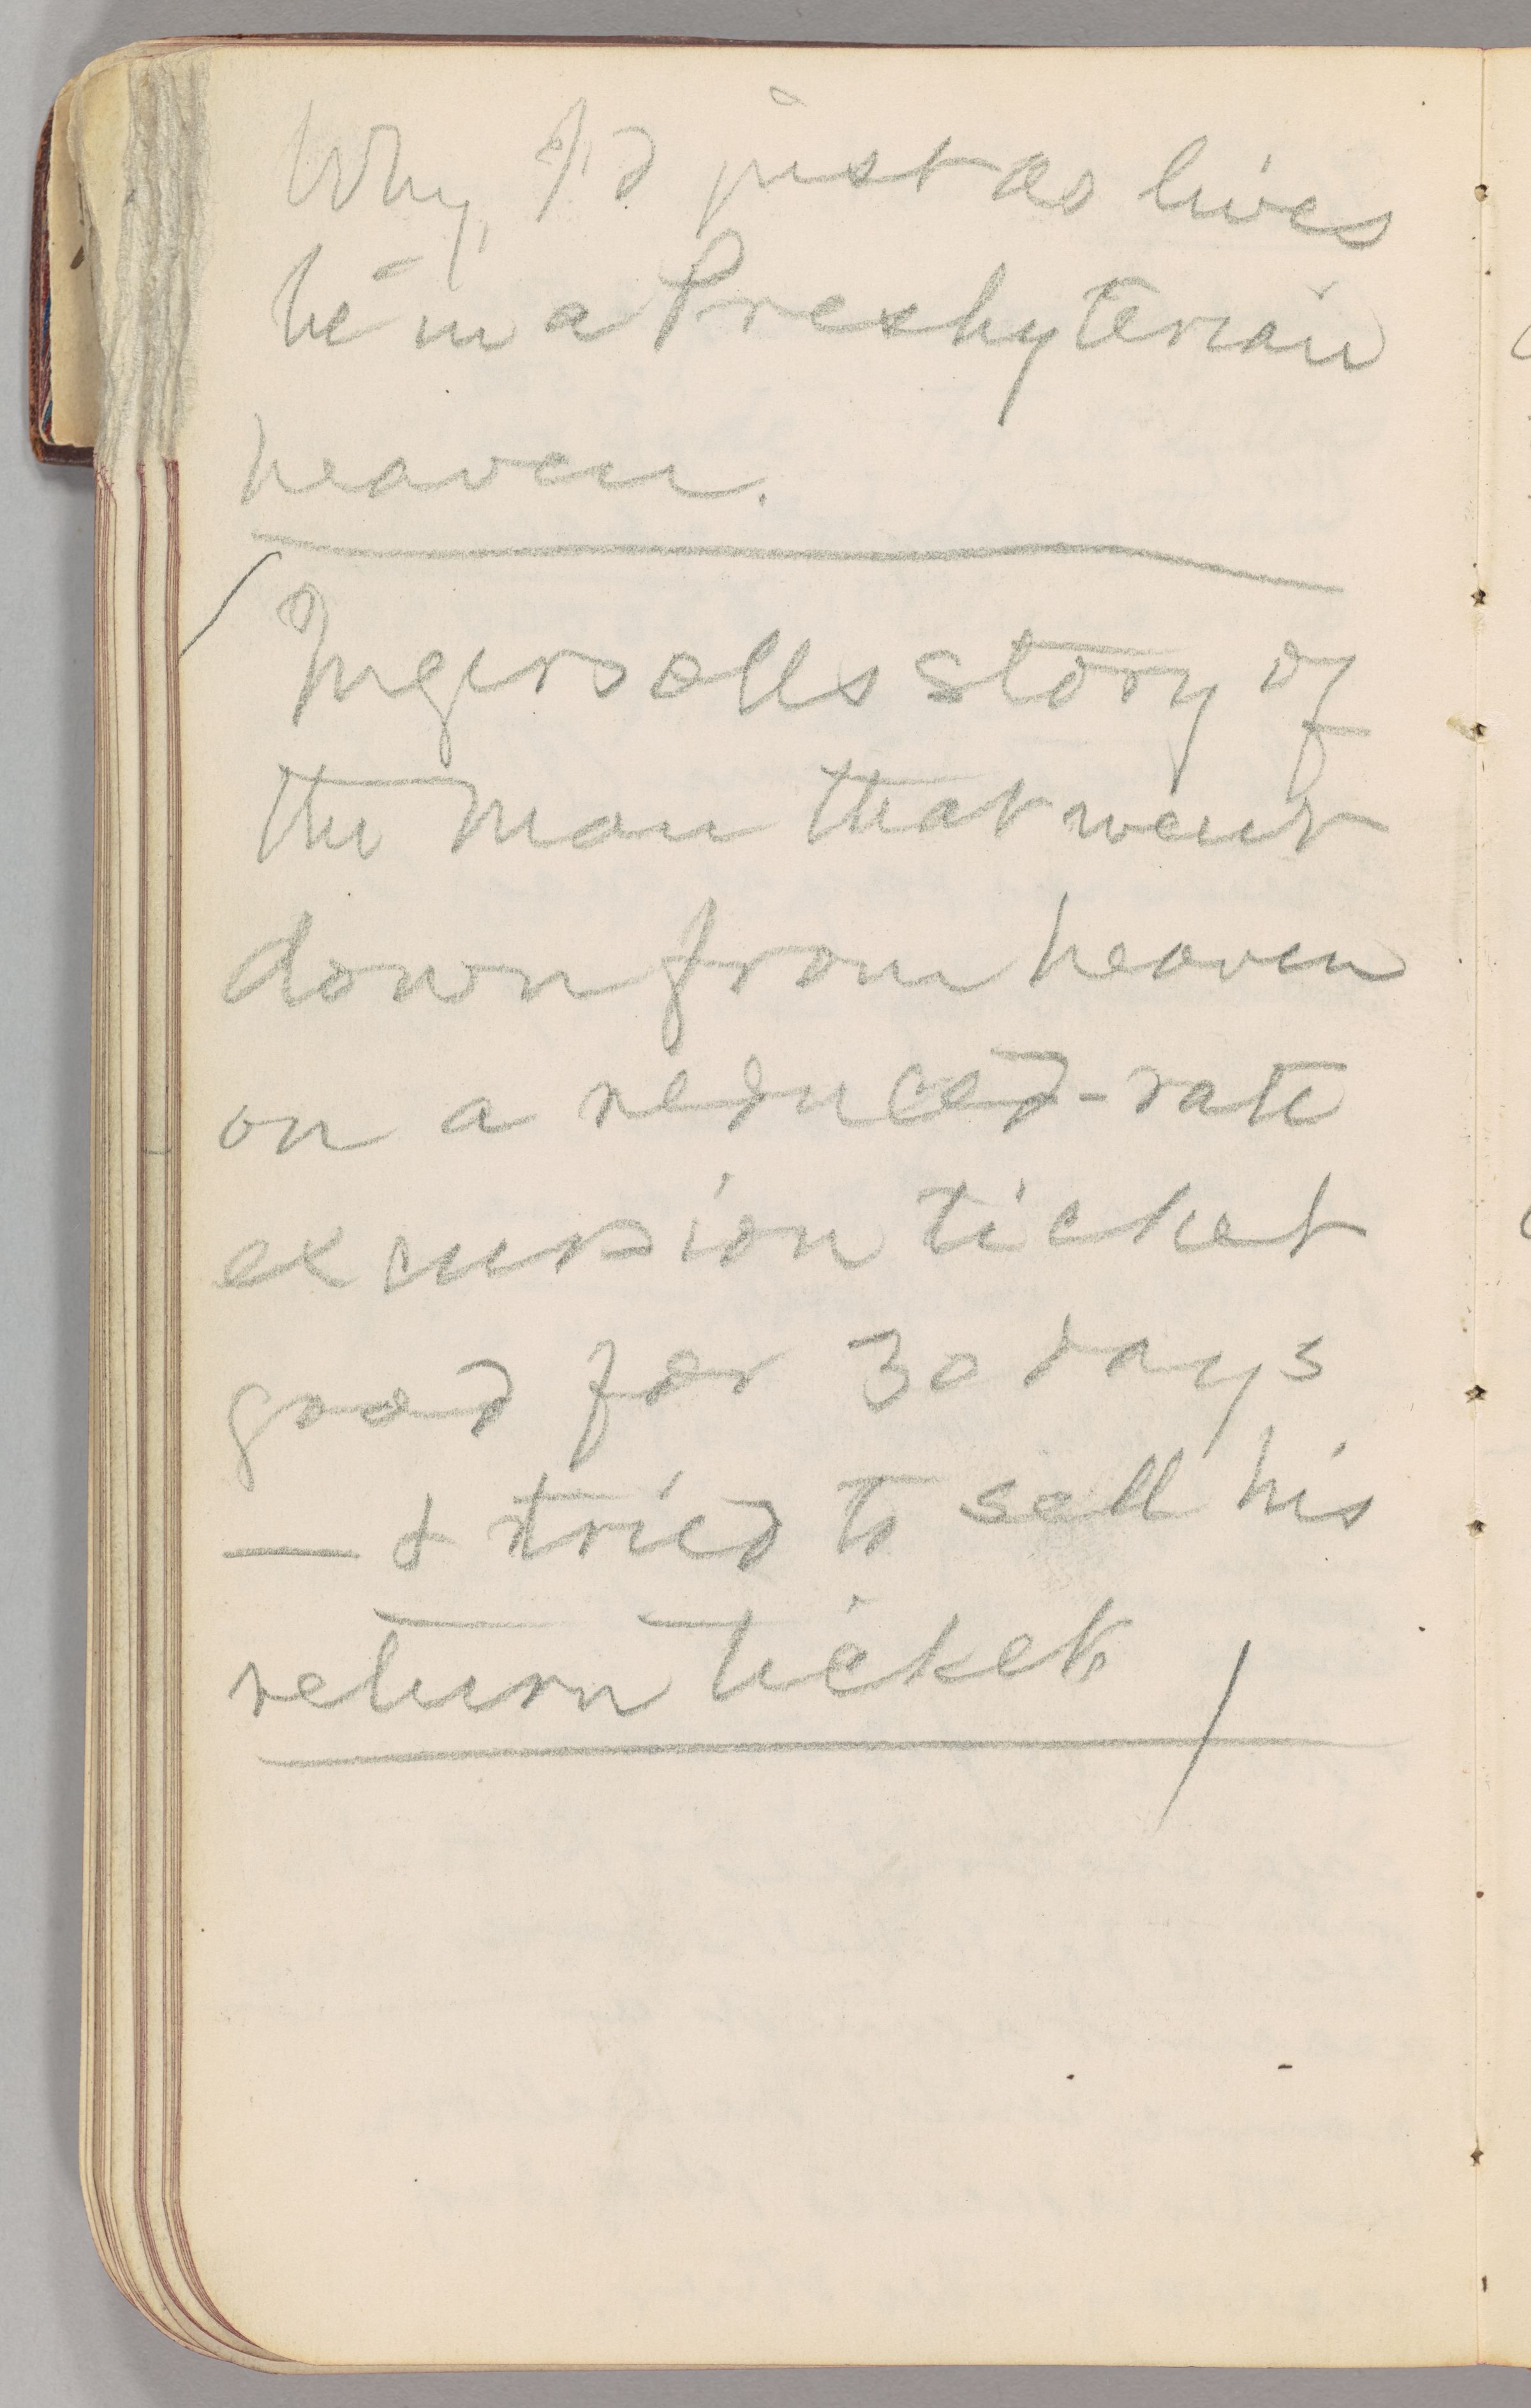 Why, I'd just as lives
be in a Presbyterian
heaven.
Ingersolls story of
the man that went
down from heaven
on a reduced-rate
excursion ticket
good for 30 days
— & tried to sell his
return ticket